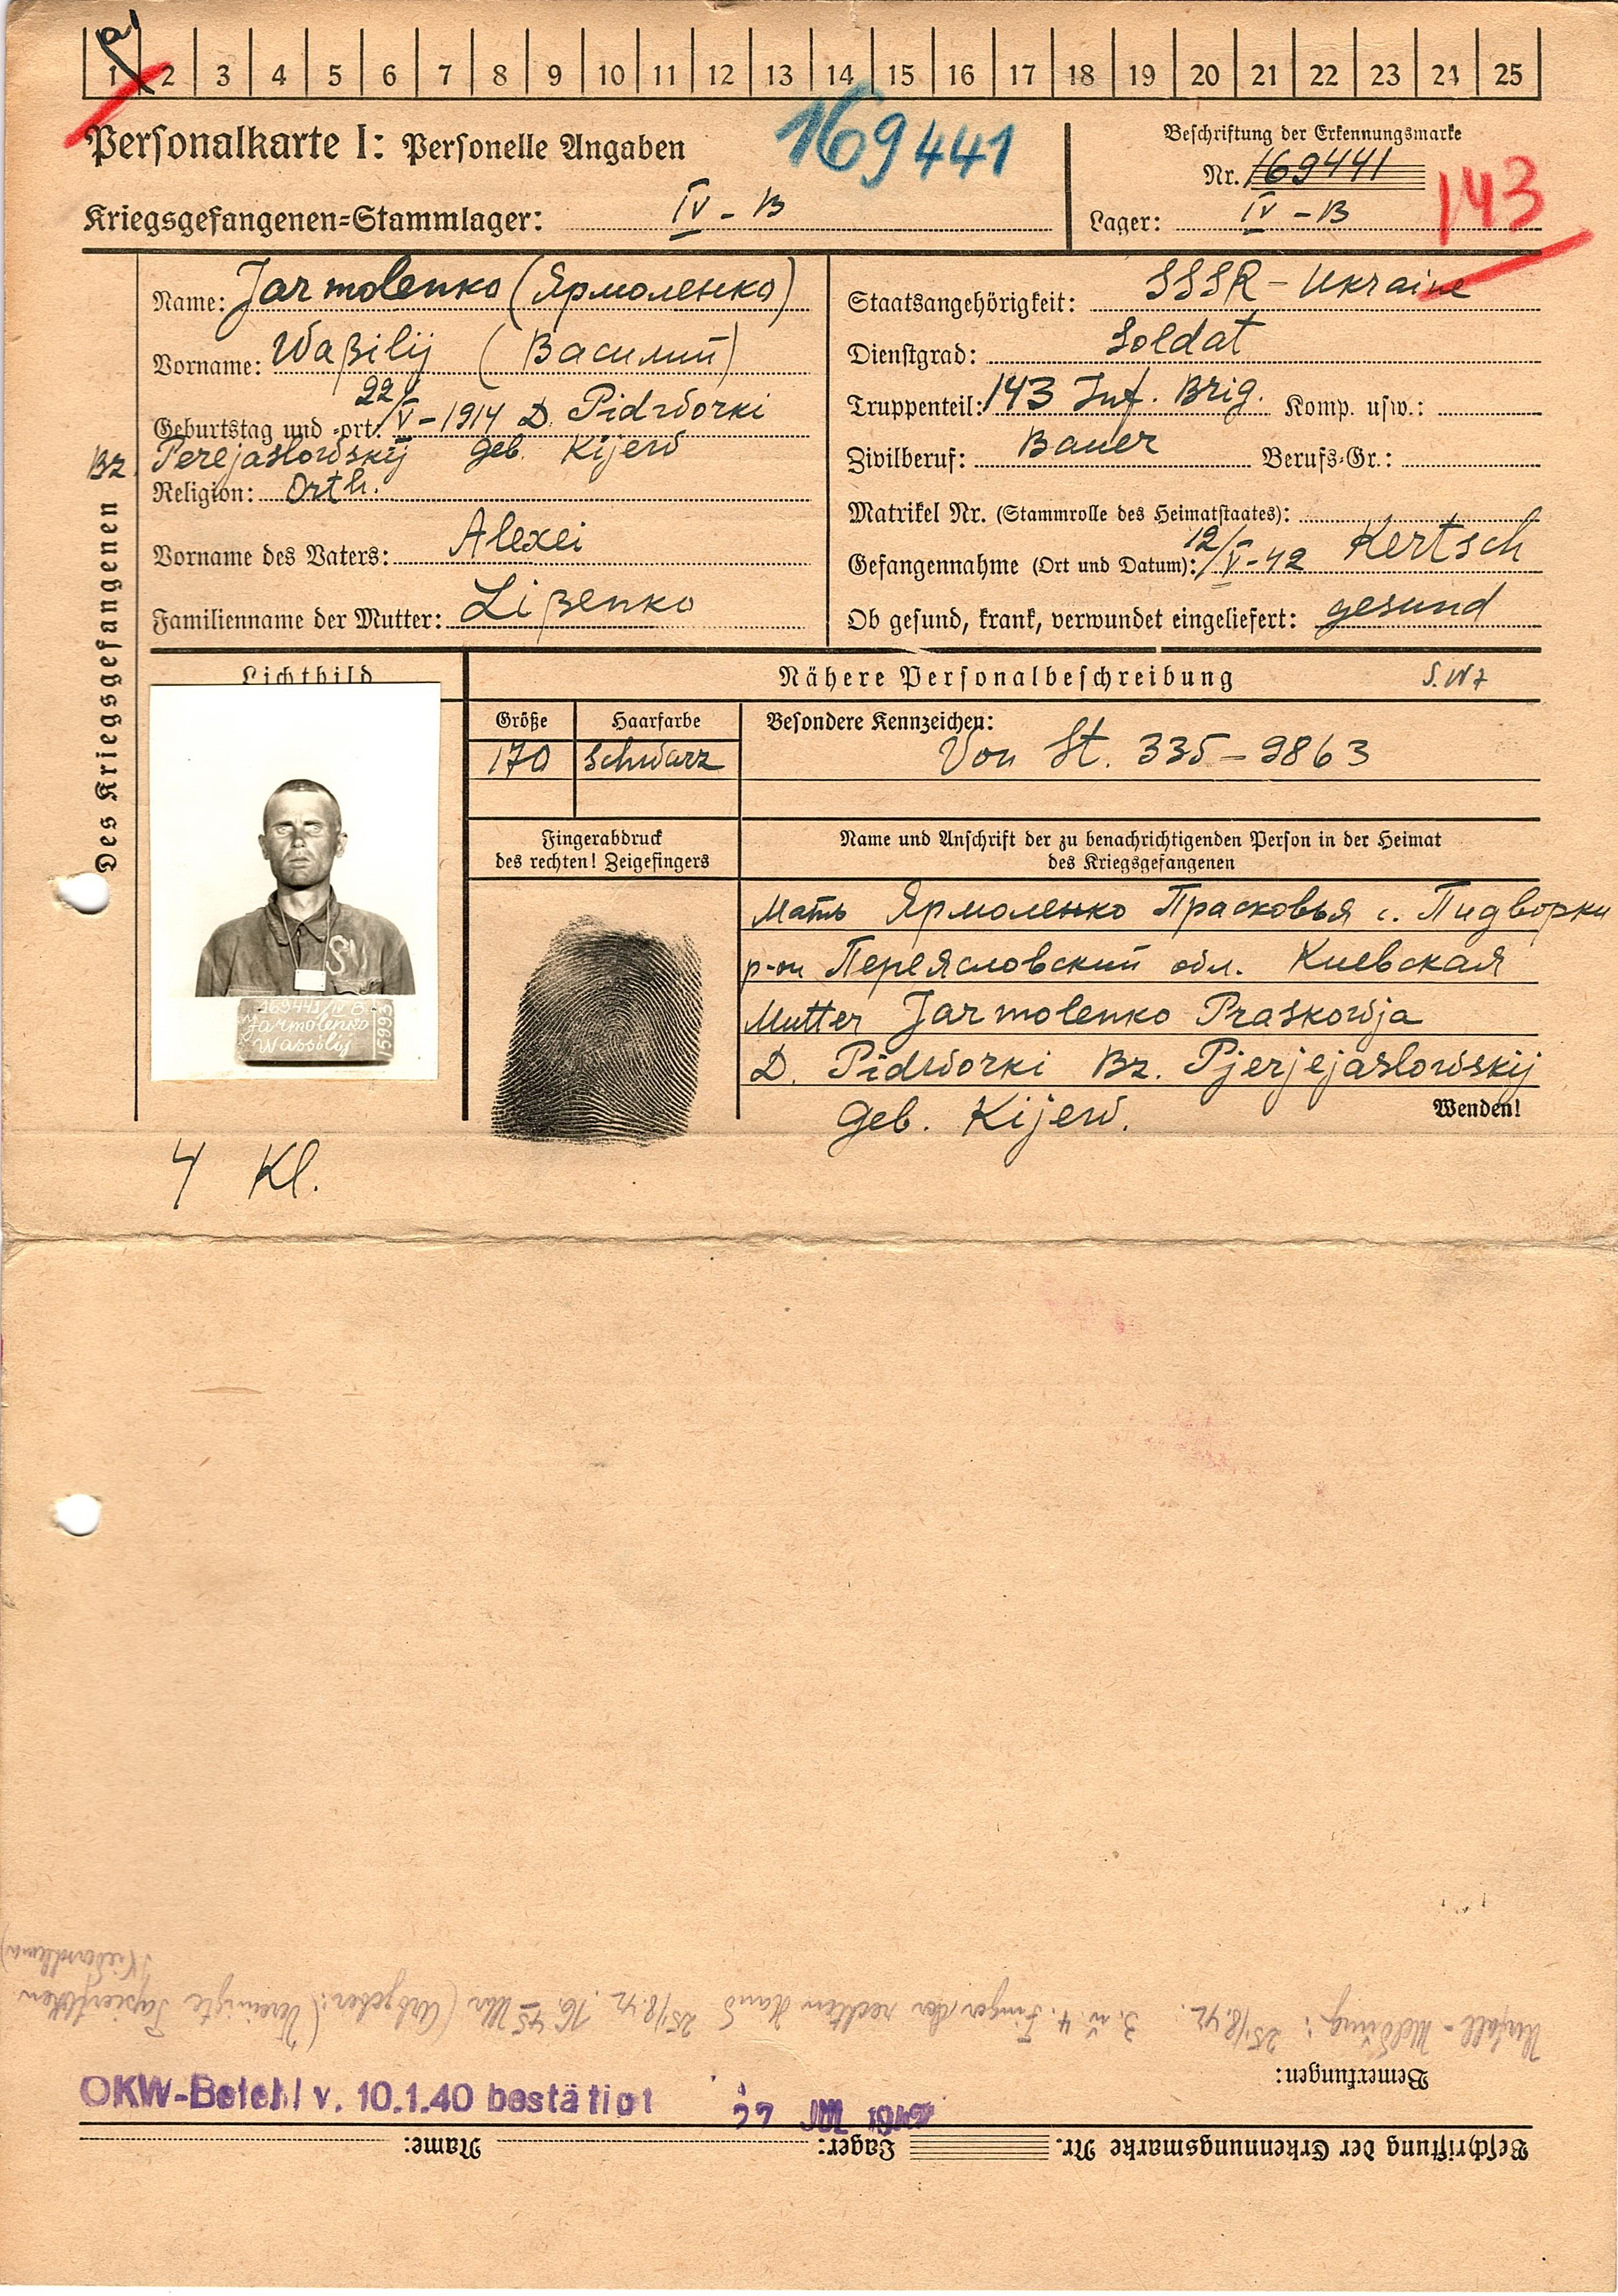 a
1 2 3 4 5 6 7 8 9 10 11 12 13 14 15 16 17 18 19 20 21 22 23 24 25
Personalkarte I: Personelle Angaben
169441
Kriegsgefangenen=Stammlager: IV - B
Beschriftung der Erkennungsmarke
Nr. 169441
Lager: IV - B
143
Des Kriegsgefangenen
Name: Jarmolenko (Ярмоленко)
Vorname: Waßilij (Василий)
Geburtstag und =ort: 22/V - 1914 D. Pidworki
Bz. Perejaslowskij Geb. Kijew
Religion: Orth.
Vorname des Vaters: Alexei
Familienname der Mutter: Lißenko
Staatsangehörigkeit: SSSR - Ukraine
Dienstgrad: Soldat
Truppenteil: 143 Inf. Brig. Komp. usw.:
Zivilberuf: Bauer Berufs=Gr.:
Matrikel Nr. (Stammrolle des Heimatstaates):
Gefangennahme (Ort und Datum): 12/V - 42 Kertsch
Ob gesund, krank, verwundet eingeliefert: gesund
Lichtbild
Nähere Personalbeschreibung
Größe Haarfarbe
170 schwarz
Besondere Kennzeichen:
Von St. 335 - 9863
Fingerabdruck
des rechten! Zeigefingers
Name und Anschrift der zu benachrichtigenden Person in der Heimat
des Kriegsgefangenen
Мать Ярмоленко Прасковья с. Пидворки
р-он Переясловский обл. Киевская
Mutter Jarmolenko Praskowja
D. Pidworki Bz. Pjerjejaslowskij
Geb. Kijew.
Wenden!
SU
169441/IV B.
Jarmolenko
Wassilij
15993
4 Kl.
Beschriftung der Erkennungsmarke Nr. Lager: Name:
OKW-Befehl v. 10.1.40 bestätigt
Bemerkungen:
Unfall - Meldung: 25/8.42. 3. u. 4. Finger der rechten Hand 25/8.42. 16.45 Uhr (Arbgeber: Vereinigte